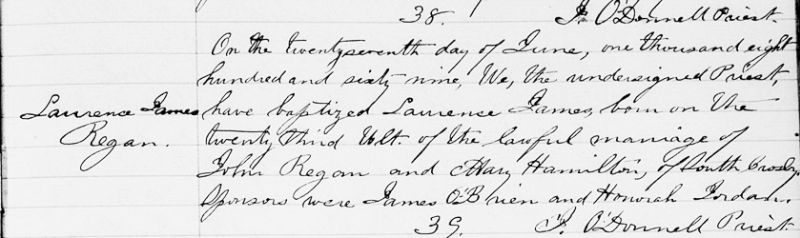 38. J. O'Donnell Priest.
On the twentyseventh day of June, one thousand eight
hundred and sixty nine, We, the undersigned Priest,
Laurence James have baptized Laurence James, born on the
Regan. twenty third Ult. of the lawful marriage of
John Regan and Mary Hamilton, of South Crosby.
Sponsors were James O'Brien and Honorah Jordan.
39. J. O'Donnell Priest.